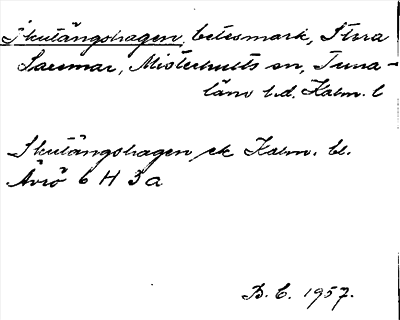 Skutängshagen, betesmark, Stora
Laxemar, Misterhults sn, Tuna-
läns hd. Kalm. l
Skutängshagen ek Kalm. bl.
Ävrö 6 H 3 a
B. E. 1957.